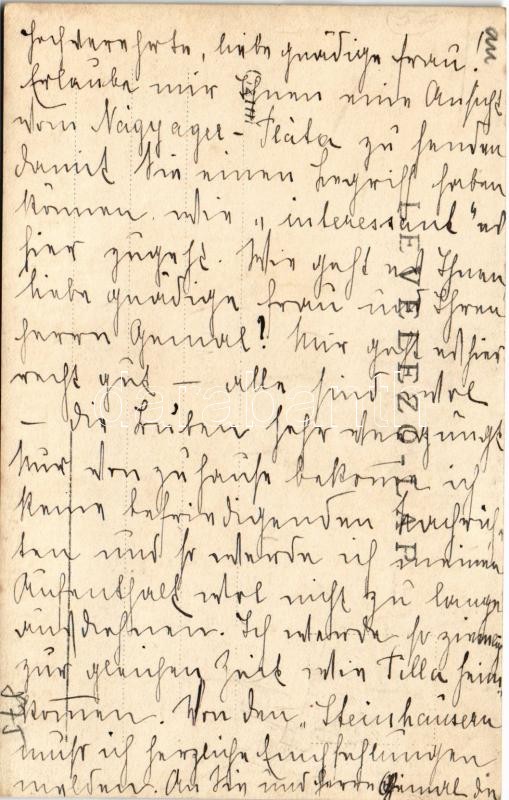 Hochverehrte, liebe gnädige Frau!
Erlaube mir Ihnen eine Ansicht
vom Nagyager-Plata zu senden
damit Sie einen Begriff haben
können wie „interessant" es
hier zugeht. Wie geht es Ihnen
liebe gnädige Frau und Ihren
Herrn Gemal? Mir geht es hier
recht gut – alle sind wol
– die Buben sehr vergnügt
Nur von zuhause bekome ich
keine befriedigenden Nachrich-
ten und so werde ich meinen
Aufenthalt wol nicht zu lange
ausdehnen. Ich werde so ziemlich
zur gleichen Zeit wie Filla heim
kommen. Von den „Steinhäusern
muss ich herzliche Empfehlungen
melden. An Sie und Herrn Gemal die
an
LEVELEZŐ-LAP